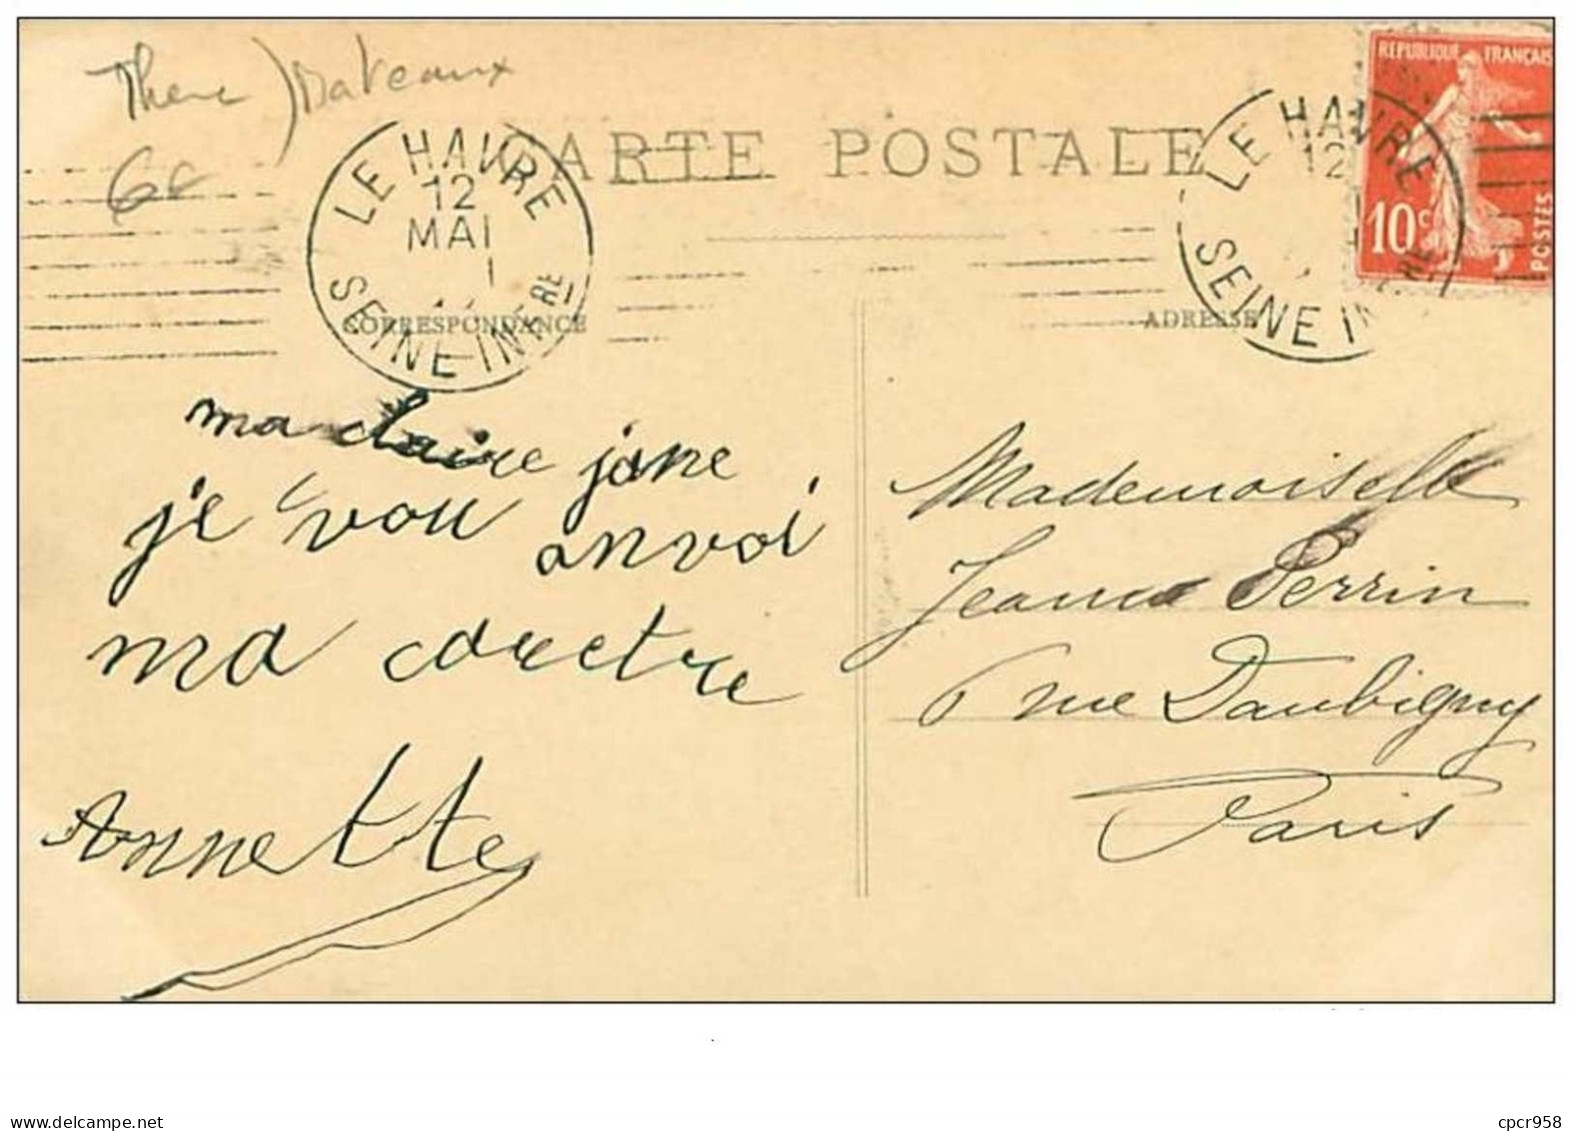 Bateaux
6c
CARTE POSTALE
LE HAVRE
12
MAI
SEINE INFRE
LE HAVRE
12
SEINE INFRE
REPUBLIQUE FRANÇAISE
10c
POSTES
CORRESPONDANCE
ADRESSE
ma claire jane
je vou anvoi
ma carctre
Annette
Mademoiselle
Jeanne Perrin
6 rue Daubigny
Paris
www.delcampe.net
cpcr958